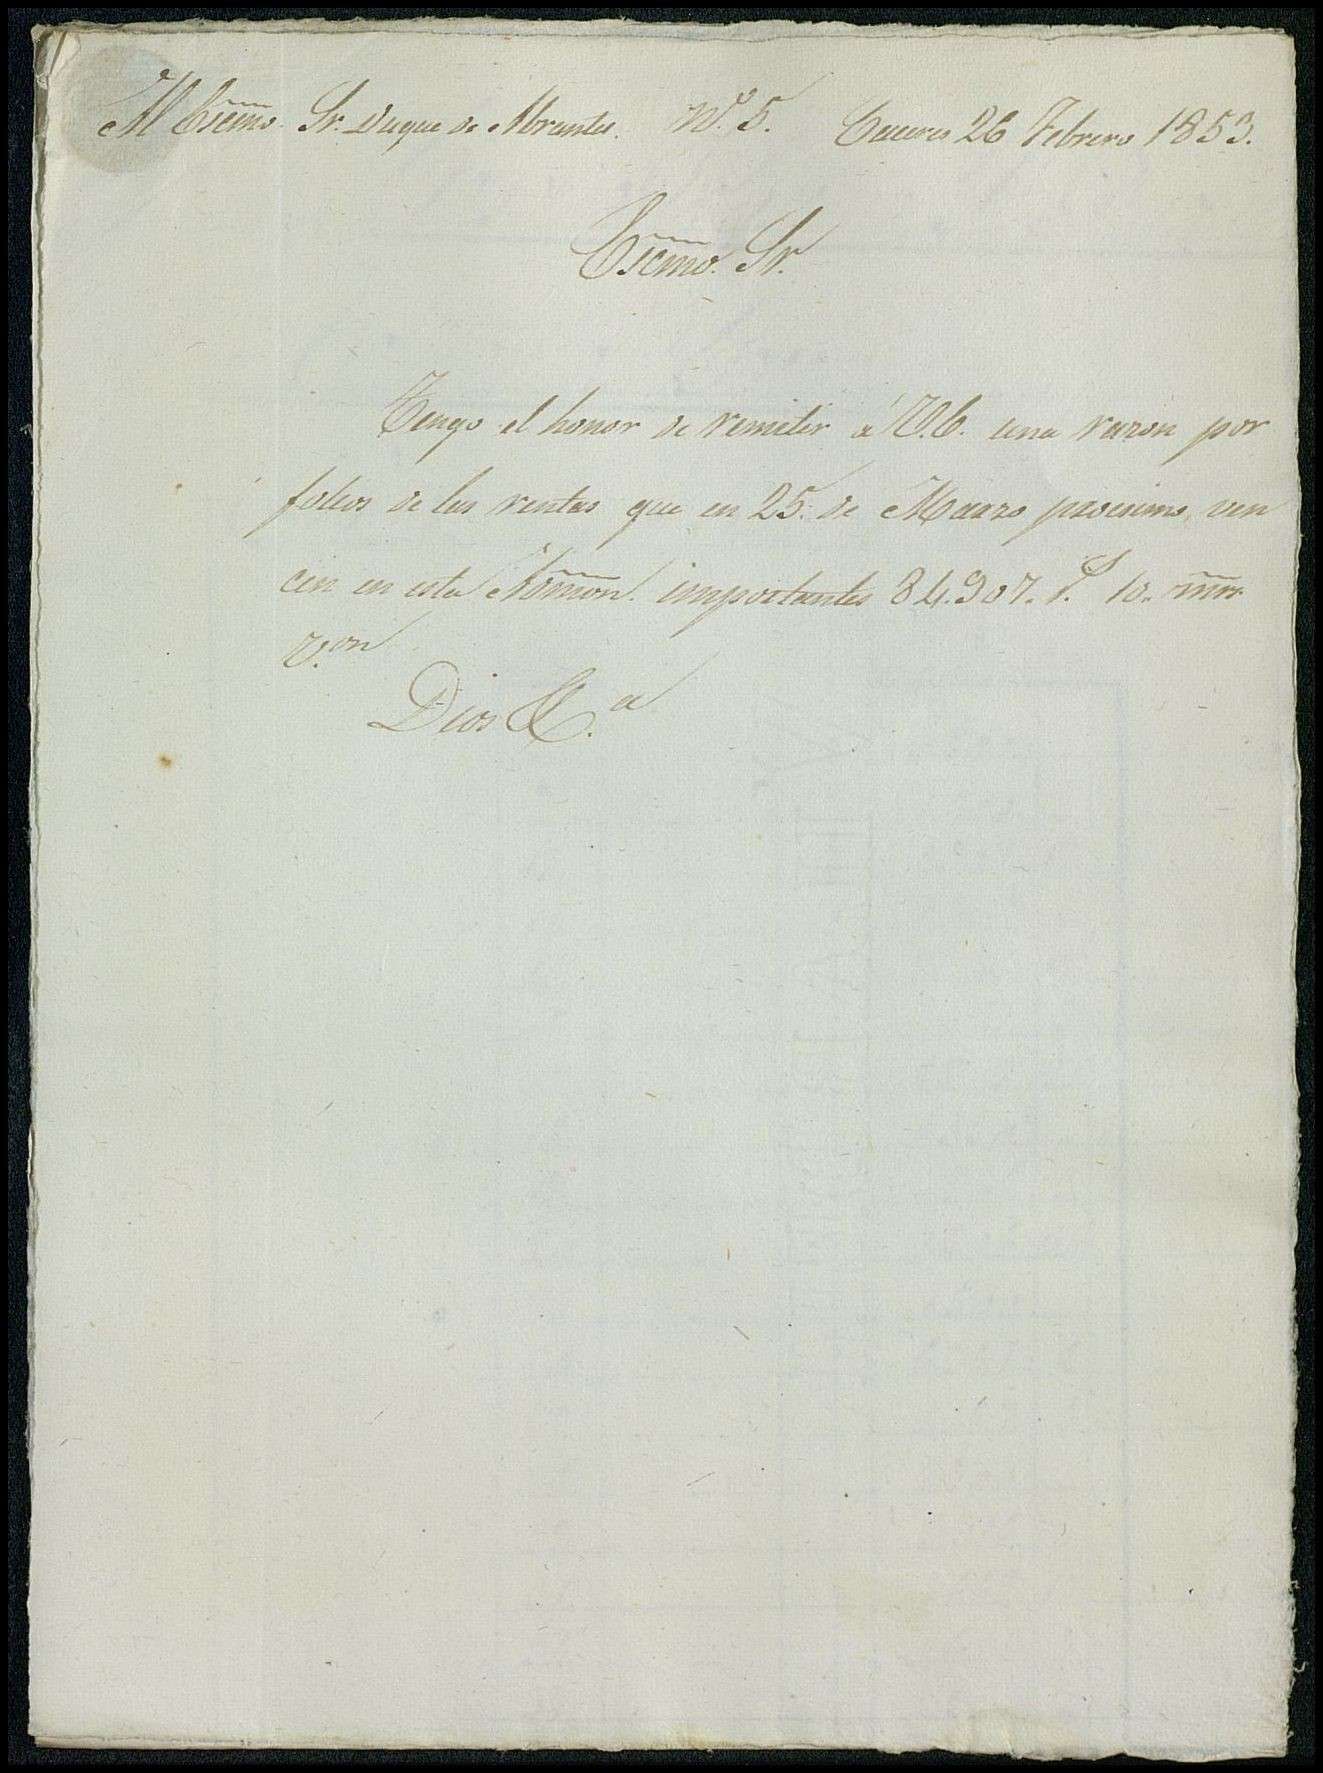 Al Escmo. Sr. Duque de Abrantes. Nº. 5. Caceres 26 Febrero 1853.
Escmo. Sr.
Tengo el honor de remitir á V.E. una razon por
folios de las rentas que en 25. de Marzo procsimo ven
cen en esta Admon. importantes 84.907. rs. 10. mrs.
Von
Dios &.a